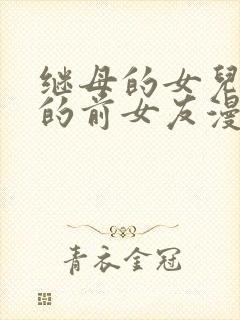 继母的女兒
的前女友漫
青衣金冠